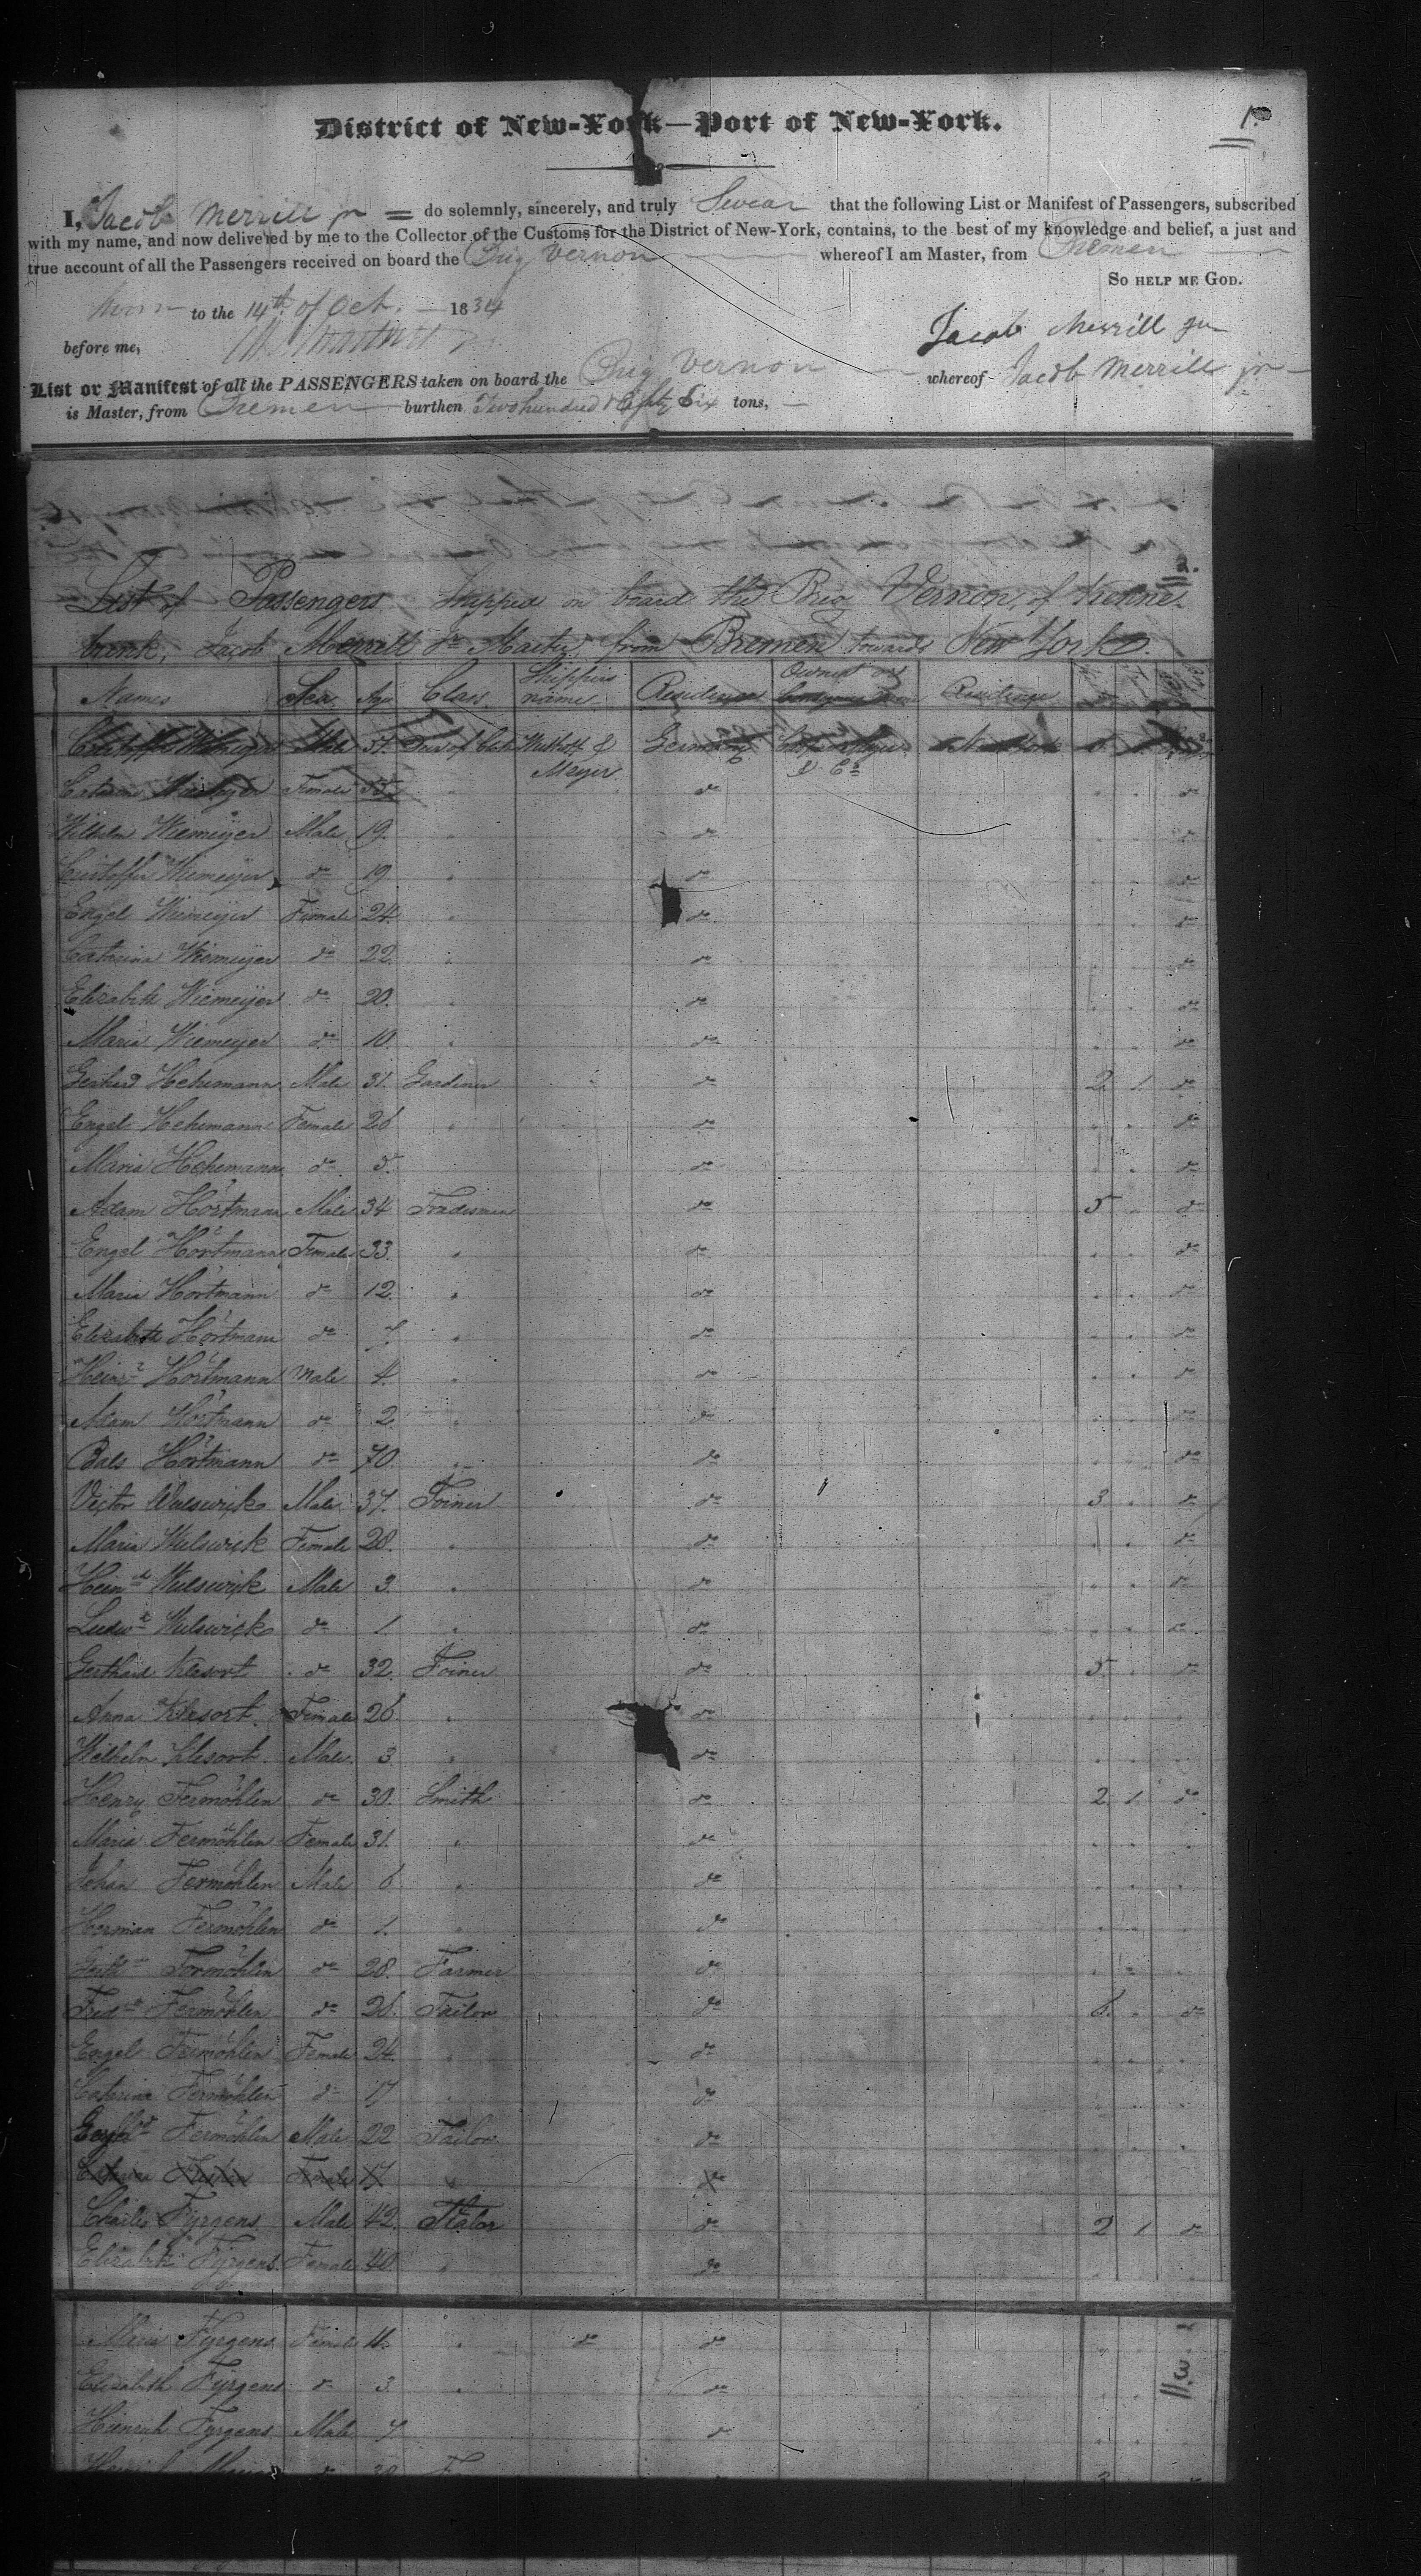 District of New-York—Port of New-York.
1.
I, Jacob Merrill jr = do solemnly, sincerely, and truly Swear that the following List or Manifest of Passengers, subscribed
with my name, and now delivered by me to the Collector of the Customs for the District of New-York, contains, to the best of my knowledge and belief, a just and
true account of all the Passengers received on board the Brig Vernon whereof I am Master, from Bremen
So help me God.
Sworn to the 14th of Oct. 1834
before me,
Jacob Merrill jr
List or Manifest of all the PASSENGERS taken on board the Brig Vernon whereof Jacob Merrill jr
is Master, from Bremen burthen Two hundred & Eighty Six tons,
2.
List of Passengers Shipped on board the Brig Vernon, of Kenne-
bunk, Jacob Merrill Jr Master, from Bremen towards New York.
Names Sex Age Class Shippers name Residence Owner or Residence
Wiemeyer Male 51 & Germany
Meyer & Co
Catarina Wiemeyer Female 55 " do do
Wilhelm Wiemeyer Male 19. " do do
Cristoffer Wiemeyer do 19 " do do
Engel Wiemeyer Female 24. " do do
Catarina Wiemeyer do 22. " do do
Elizabeth Wiemeyer do 20. " do do
Maria Wiemeyer do 10. " do do
Gerhard Hehemann Male 31. Gardiner do 2. 1. do
Engel Hehemann Female 26 " do do
Maria Hehemann do 5. do do
Adam Hörtmann Male 34 Tradesman do 5 do
Engel Hörtmann Female 33. " do do
Maria Hörtmann do 12. " do do
Elizabeth Hörtmann do 7. " do do
Heinr Hörtmann Male 4. " do do
Adam Hörtmann do 2. " do do
Bals Hörtmann do 70. " do do
Victor Wulswick Male 37. Joiner do 3. do
Maria Wulswick Female 28. " do do
Heinh Wulswick Male 3. " do do
Ludw Wulswick do 1. " do do
Gerthard Klesort do 32. Joiner do 5. do
Anna Klesort Female 26. " do
Wilhelm Klesort. Male. 3 " do
Henry Fermöhlen do 30. Smith do 2. 1. do
Maria Fermöhlen Female 31. " do
Johan Fermöhlen Male 6 " do
Herman Fermöhlen do 1. " do
Fermöhlen do 28. Farmer do
Fred Fermöhlen do 26. Tailor do 6. do
Engel Fermöhlen Female 24. " do
Catarina Fermöhlen do 17 do
Fermöhlen Male 22 Tailor do
Female 17 " do
Charles Fyrgens Male 42. do 2 1 do
Elizabeth Fyrgens Female 40. " do
Maria Fyrgens Female 11. " do do
Elizabeth Fyrgens do 3 " do
Heinrich Fyrgens Male 7 do